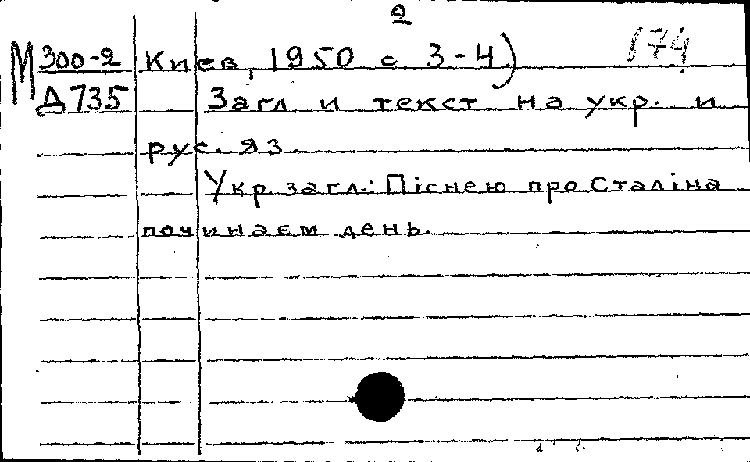 2
М 300-2 Киев, 1950 с 3-4) 174
Д735 Загл и текст на укр. и
рус. яз.
Укр. загл.: Піснею про Сталіна
починаєм день.